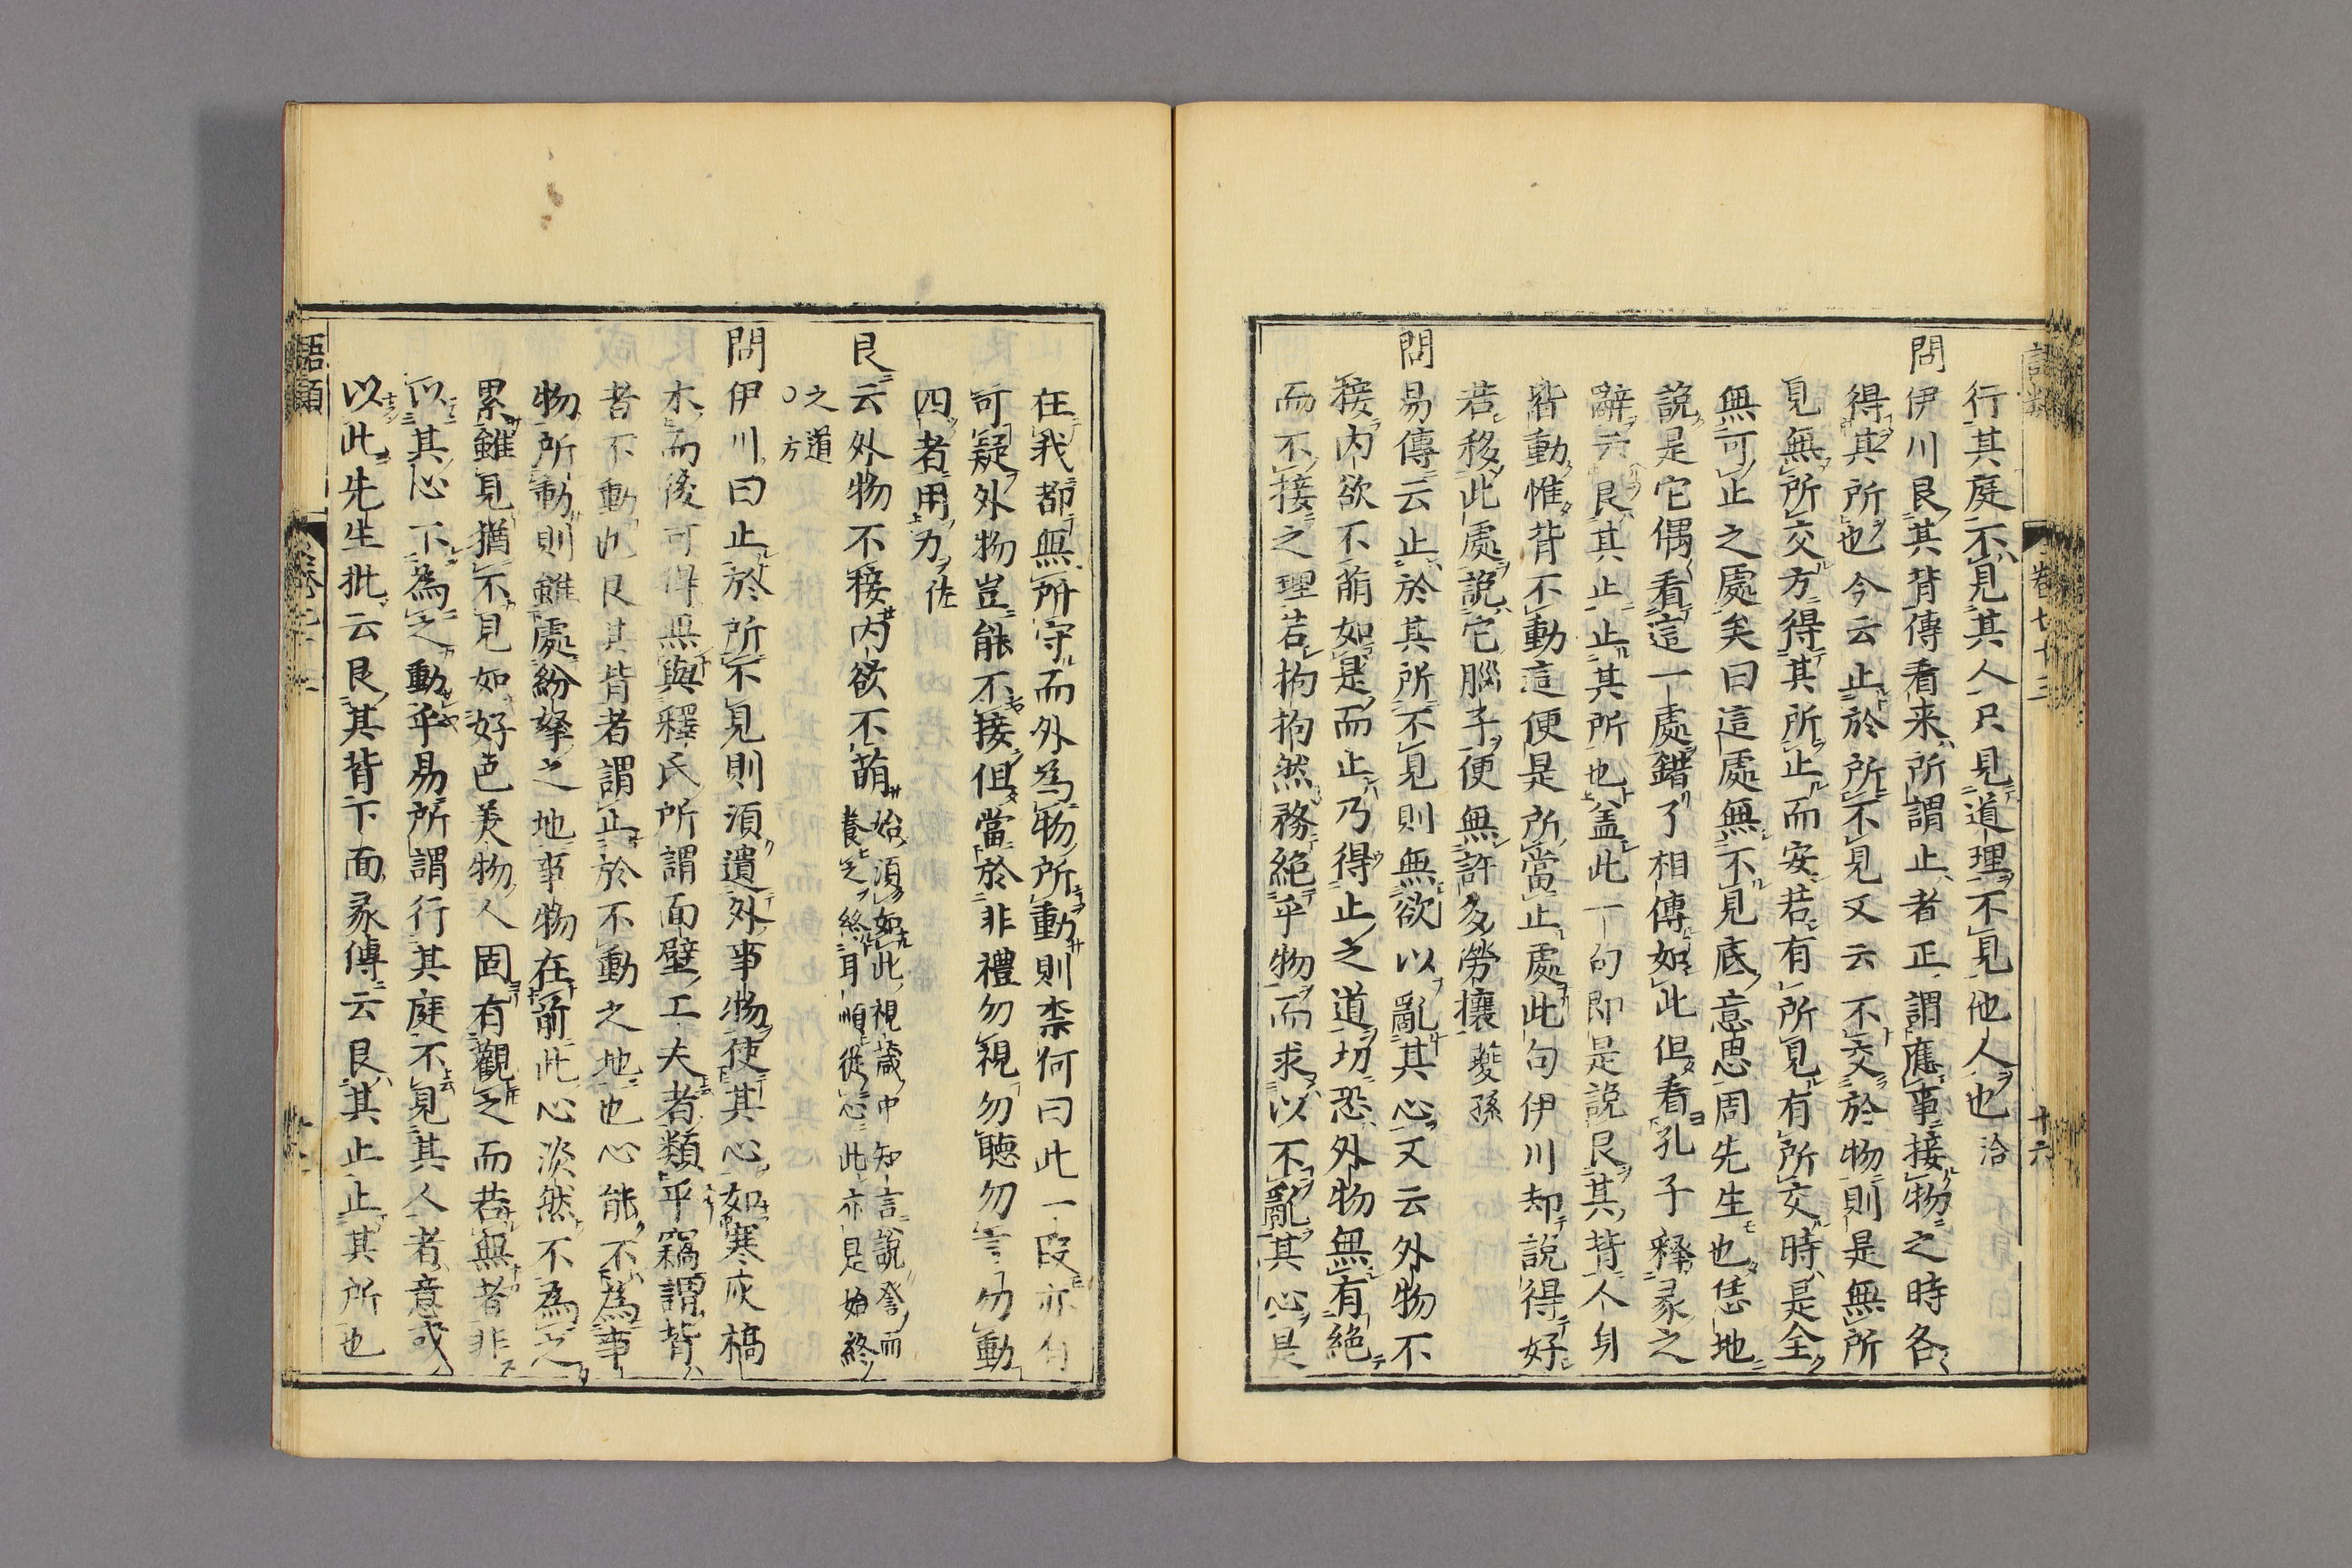 語類
卷七十三
十六
行其庭不見其人只見道理不見他人也洽
問伊川艮其背傳看來所謂止者正謂應事接物之時各
得其所也今云止於所不見又云不交於物則是無所
見無所交方得其所止而安若有所見有所交時是全
無可止之處矣曰這處無不見底意思周先生也恁地
說是它偶看這一處錯了相傳如此但看孔子釋彖之
辭云艮其止止其所也蓋此一句即是說艮其背人身
皆動惟背不動這便是所當止處此句伊川却說得好
若移此處說它腦子便無許多勞攘夔孫
問易傳云止於其所不見則無欲以亂其心又云外物不
接內欲不萌如是而止乃得止之道切恐外物無有絕
而不接之理若拘拘然務絕乎物而求以不亂其心是
在我都無所守而外為物所動則柰何曰此一段亦有
可疑外物豈能不接但當於非禮勿視勿聽勿言勿動
四者用力佐
艮云外物不接內欲不萌始須如此視箴中知言說發而
養之終耳順從心此亦是始終
之道
○方
問伊川曰止於所不見則須遺外事物使其心如寒灰槁
木而後可得無與釋氏所謂面壁工夫者類乎竊謂背
者不動也艮其背者謂止於不動之地也心能不為事
物所動則雖處紛拏之地事物在前此心淡然不為之
累雖見猶不見如好色美物人固有觀之而若無者非
以其心不為之動乎易所謂行其庭不見其人者意或
以此先生批云艮其背下面彖傳云艮其止止其所也
語類